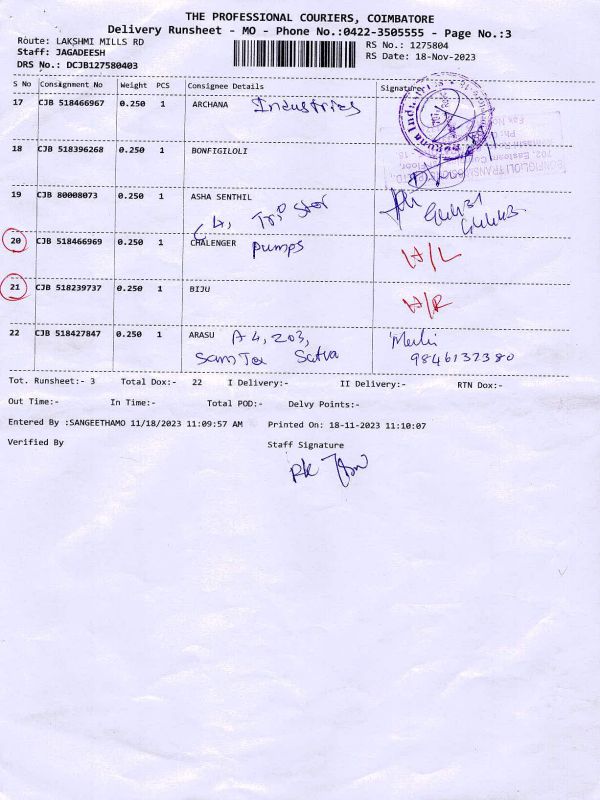 THE PROFESSIONAL COURIERS, COIMBATORE
Delivery Runsheet - MO - Phone No.:0422-3505555 - Page No.:3
Route: LAKSHMI MILLS RD
RS No.: 1275804
Staff: JAGADEESH
RS Date: 18-Nov-2023
DRS No.: DCJB127580403
S No Consignment No Weight PCS Consignee Details Signature
17 CJB 518466967 0.250 1 ARCHANA Industries
18 CJB 518396268 0.250 1 BONFIGILOLI
19 CJB 80008073 0.250 1 ASHA SENTHIL
20 CJB 518466969 0.250 1 CHALENGER pumps H/L
21 CJB 518239737 0.250 1 BIJU H/R
22 CJB 518427847 0.250 1 ARASU A4, 203,
9846132380
Tot. Runsheet:- 3 Total Dox:- 22 I Delivery:- II Delivery:- RTN Dox:-
Out Time:- In Time:- Total POD:- Delvy Points:-
Entered By :SANGEETHAMO 11/18/2023 11:09:57 AM Printed On: 18-11-2023 11:10:07
Verified By Staff Signature